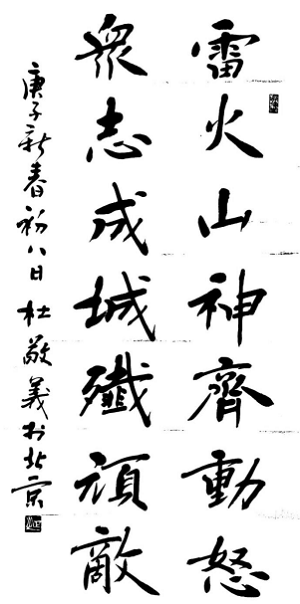 雷火山神齊動怒
眾志成城殲頑敵
庚子新春初八日杜敬義於北京